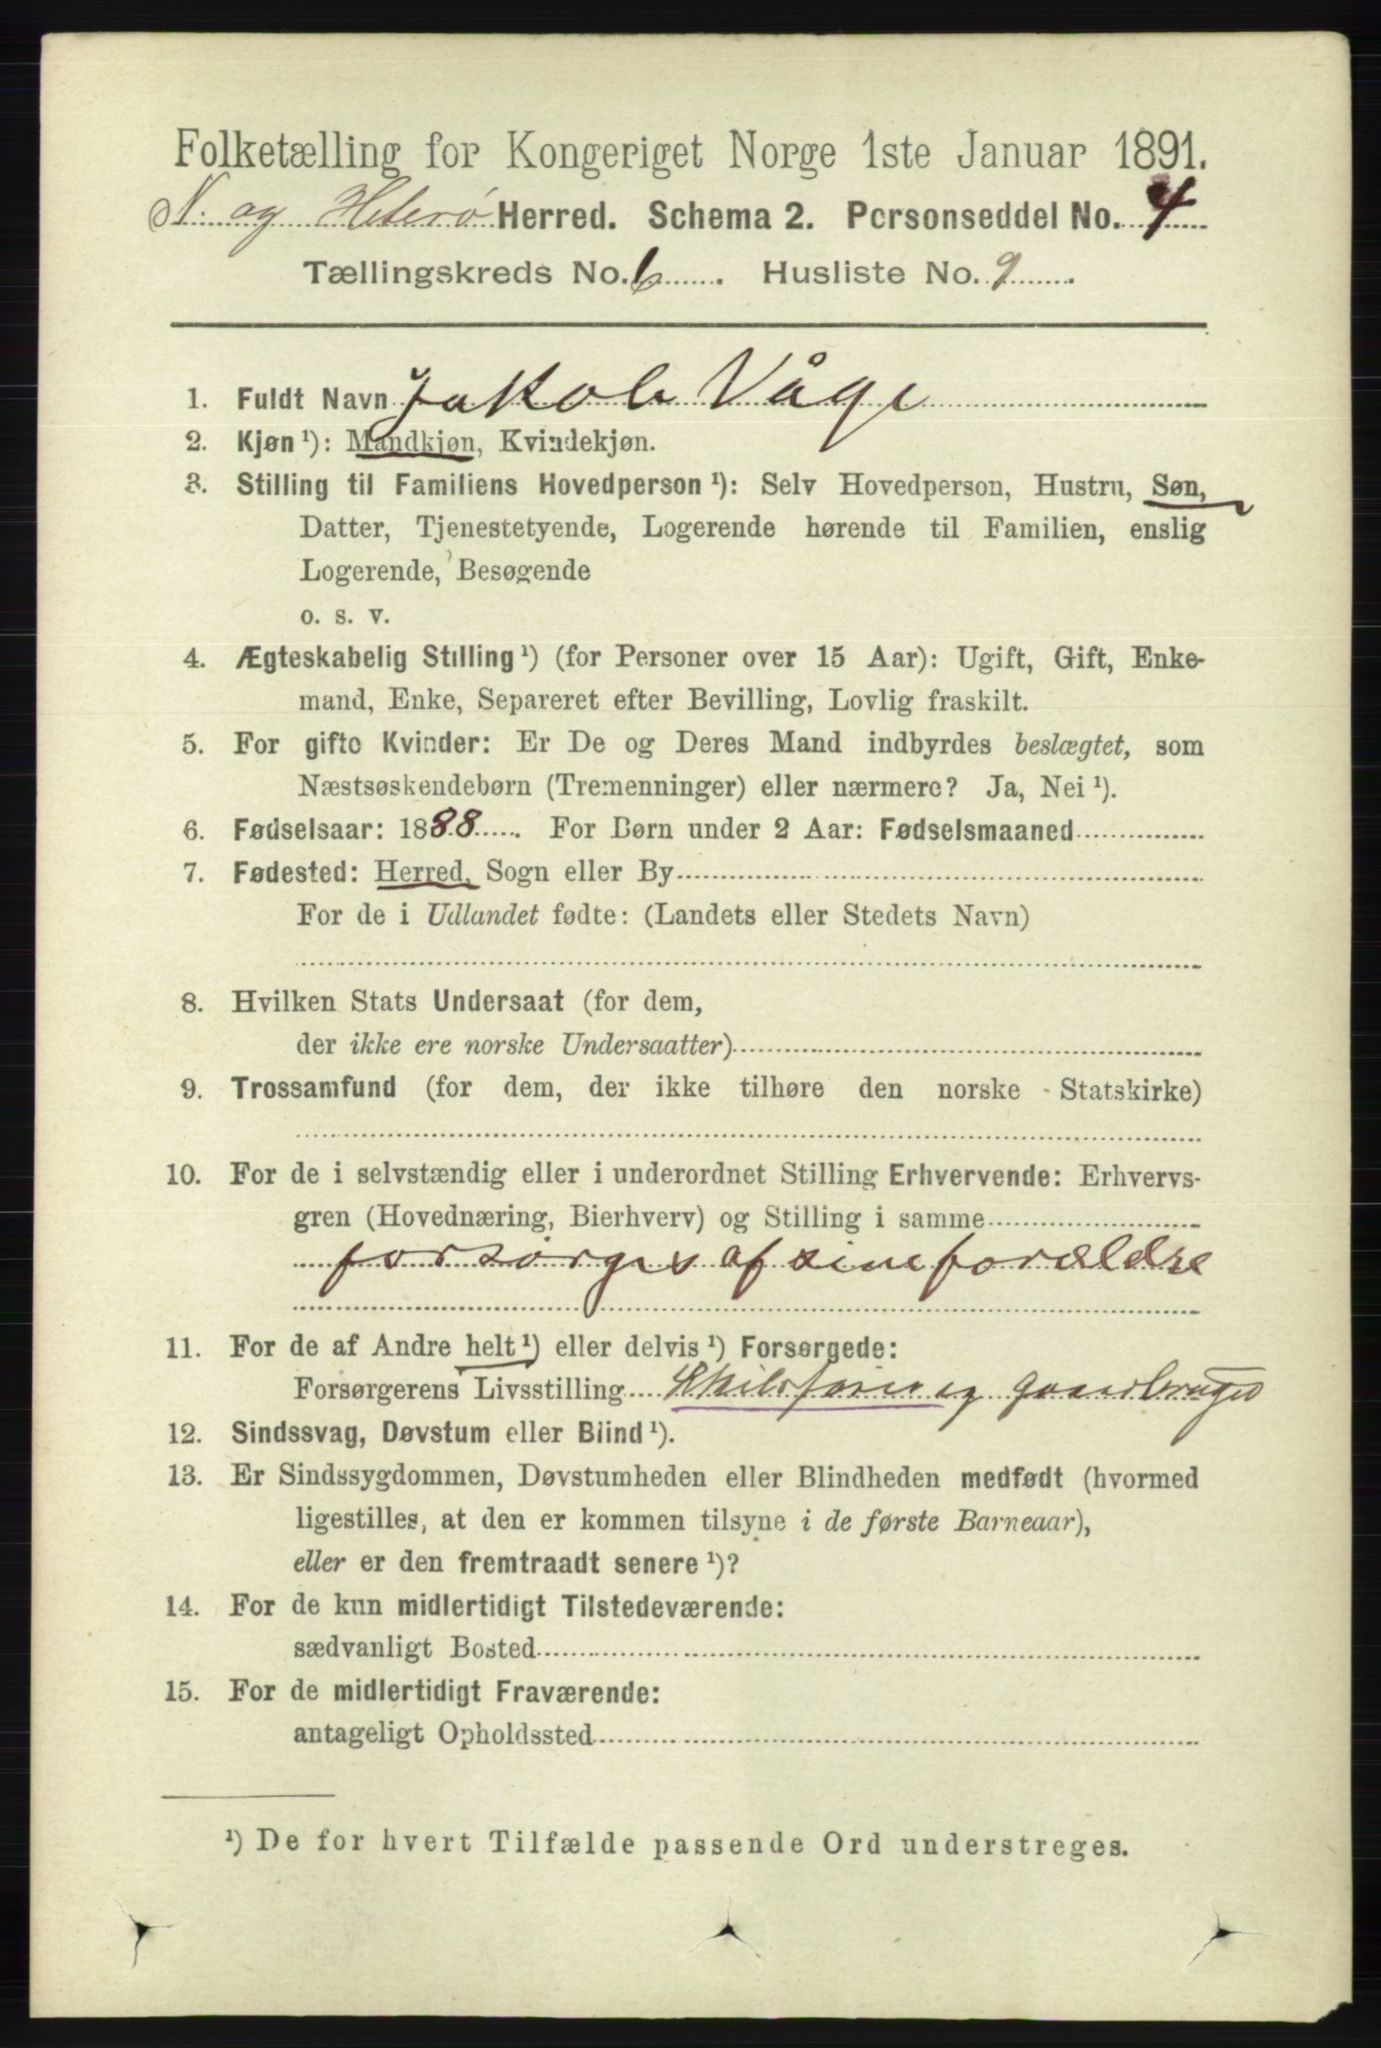 Folketælling for Kongeriget Norge 1ste Januar 1891.
N. og Hiterø Herred. Schema 2. Personseddel No. 4
Tællingskreds No. 6. Husliste No. 9.
1. Fuldt Navn Jakob Våge
2. Kjøn ¹): Mandkjøn, Kvindekjøn.
3. Stilling til Familiens Hovedperson ¹): Selv Hovedperson, Hustru, Søn,
Datter, Tjenestetyende, Logerende hørende til Familien, enslig
Logerende, Besøgende
o. s. v.
4. Ægteskabelig Stilling ¹) (for Personer over 15 Aar): Ugift, Gift, Enke-
mand, Enke, Separeret efter Bevilling, Lovlig fraskilt.
5. For gifte Kvinder: Er De og Deres Mand indbyrdes beslægtet, som
Næstsøskendebørn (Tremenninger) eller nærmere? Ja, Nei ¹).
6. Fødselsaar: 1888. For Børn under 2 Aar: Fødselsmaaned
7. Fødested: Herred, Sogn eller By
For de i Udlandet fødte: (Landets eller Stedets Navn)
8. Hvilken Stats Undersaat (for dem,
der ikke ere norske Undersaatter)
9. Trossamfund (for dem, der ikke tilhøre den norske Statskirke)
10. For de i selvstændig eller i underordnet Stilling Erhvervende: Erhvervs-
gren (Hovednæring, Bierhverv) og Stilling i samme
forsørges af sine forældre
11. For de af Andre helt ¹) eller delvis ¹) Forsørgede:
Forsørgerens Livsstilling og gaardbruger
12. Sindssvag, Døvstum eller Blind ¹).
13. Er Sindssygdommen, Døvstumheden eller Blindheden medfødt (hvormed
ligestilles, at den er kommen tilsyne i de første Barneaar),
eller er den fremtraadt senere ¹)?
14. For de kun midlertidigt Tilstedeværende:
sædvanligt Bosted
15. For de midlertidigt Fraværende:
antageligt Opholdssted
¹) De for hvert Tilfælde passende Ord understreges.